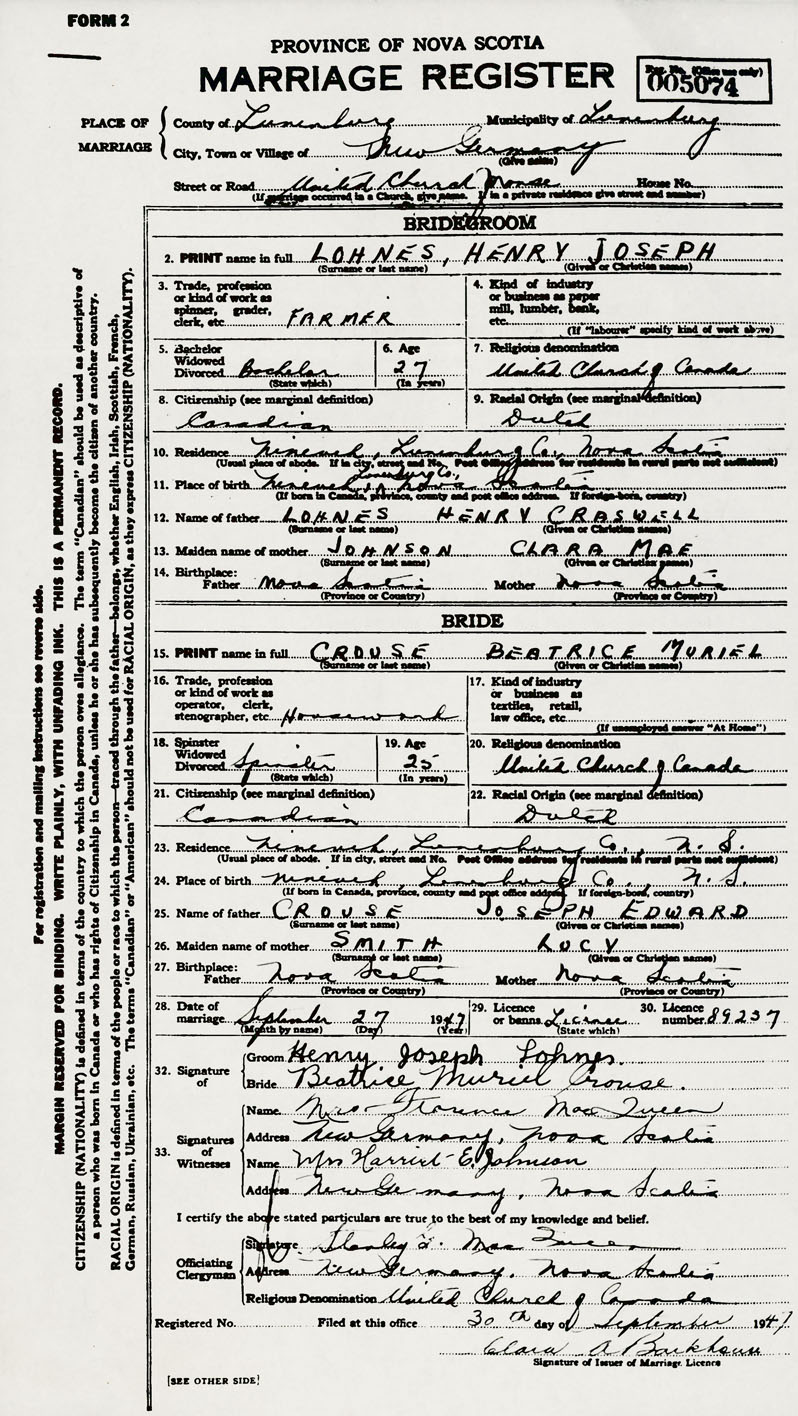 FORM 2
PROVINCE OF NOVA SCOTIA
MARRIAGE REGISTER
Reg. No. (Office use only)
005074
PLACE OF MARRIAGE
County of Lunenburg Municipality of Lunenburg
City, Town or Village of New Germany
(Give name)
Street or Road United Church Manse House No.
(If marriage occurred in a Church, give name. If in a private residence give street and number)
BRIDEGROOM
2. PRINT name in full LOHNES, HENRY JOSEPH
(Surname or last name) (Given or Christian names)
3. Trade, profession or kind of work as spinner, grader, clerk, etc. FARMER
4. Kind of industry or business as paper mill, lumber, bank, etc.
(If "labourer" specify kind of work above)
5. Bachelor Widowed Divorced Bachelor
(State which)
6. Age 27
(In years)
7. Religious denomination
United Church of Canada
8. Citizenship (see marginal definition)
Canadian
9. Racial Origin (see marginal definition)
Dutch
10. Residence Nineveh, Lunenburg Co., Nova Scotia
(Usual place of abode. If in city, street and No. Post Office address for residents in rural parts not sufficient)
11. Place of birth Nineveh, Lunenburg Co., Nova Scotia
(If born in Canada, province, county and post office address. If foreign-born, country)
12. Name of father LOHNES HENRY CRASWELL
(Surname or last name) (Given or Christian names)
13. Maiden name of mother JOHNSON CLARA MAE
(Surname or last name) (Given or Christian names)
14. Birthplace:
Father Nova Scotia Mother Nova Scotia
(Province or Country) (Province or Country)
BRIDE
15. PRINT name in full CROUSE BEATRICE MURIEL
(Surname or last name) (Given or Christian names)
16. Trade, profession or kind of work as operator, clerk, stenographer, etc. Housework
17. Kind of industry or business as textiles, retail, law office, etc.
(If unemployed answer "At Home")
18. Spinster Widowed Divorced Spinster
(State which)
19. Age 25
(In years)
20. Religious denomination
United Church of Canada
21. Citizenship (see marginal definition)
Canadian
22. Racial Origin (see marginal definition)
Dutch
23. Residence Nineveh, Lunenburg Co., N. S.
(Usual place of abode. If in city, street and No. Post Office address for residents in rural parts not sufficient)
24. Place of birth Nineveh Lunenburg Co., N. S.
(If born in Canada, province, county and post office address. If foreign-born, country)
25. Name of father CROUSE JOSEPH EDWARD
(Surname or last name) (Given or Christian names)
26. Maiden name of mother SMITH LUCY
(Surname or last name) (Given or Christian names)
27. Birthplace:
Father Nova Scotia Mother Nova Scotia
(Province or Country) (Province or Country)
28. Date of marriage September 27 1947
(Month by name) (Day) (Year)
29. Licence or banns Licence
(State which)
30. Licence number 89237
32. Signature of
Groom Henry Joseph Lohnes.
Bride Beatrice Muriel Crouse.
33. Signatures of Witnesses
Name Mrs. Florence MacQueen
Address New Germany, Nova Scotia
Name Mrs Harriet E. Johnson
Address New Germany, Nova Scotia
I certify the above stated particulars are true to the best of my knowledge and belief.
Officiating Clergyman
Signature Stanley G. MacQueen
Address New Germany, Nova Scotia
Religious Denomination United Church of Canada
Registered No. Filed at this office 30th day of September 1947
Clara A Barkhouse
Signature of Issuer of Marriage Licence
[SEE OTHER SIDE]
For registration and mailing instructions see reverse side.
MARGIN RESERVED FOR BINDING. WRITE PLAINLY, WITH UNFADING INK. THIS IS A PERMANENT RECORD.
CITIZENSHIP (NATIONALITY) is defined in terms of the country to which the person owes allegiance. The term "Canadian" should be used as descriptive of
a person who was born in Canada or who has rights of Citizenship in Canada, unless he or she has subsequently become the citizen of another country.
RACIAL ORIGIN is defined in terms of the people or race to which the person—traced through the father—belongs, whether English, Irish, Scottish, French,
German, Russian, Ukrainian, etc. The terms "Canadian" or "American" should not be used for RACIAL ORIGIN, as they express CITIZENSHIP (NATIONALITY).